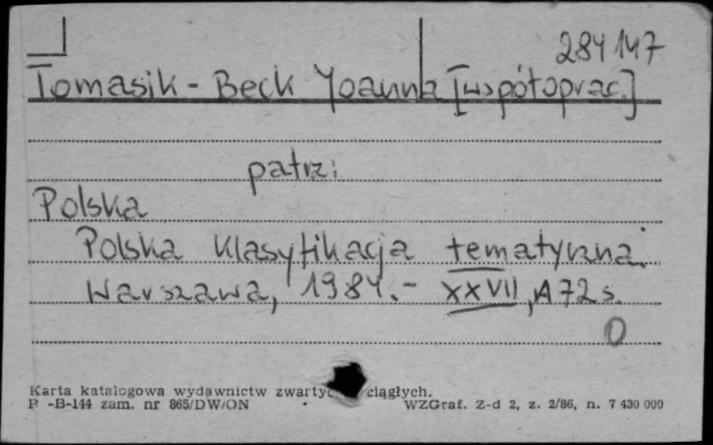 284147
Tomasik-Beck Yoanna [współoprac.]
patrz:
Polska
Polska klasyfikacja tematyczna.
Warszawa, 1984.- XXVII, 172 s.
0
Karta katalogowa wydawnictw zwartych ciągłych.
P -B-144 zam. nr 865/DW/ON WZGraf. Z-d 2, z. 2/86, n. 7 430 000